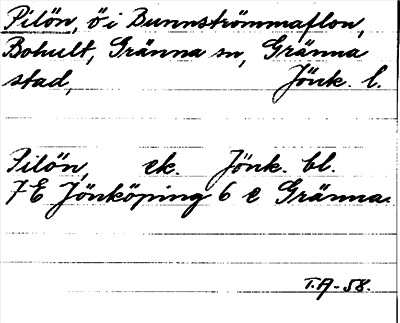 Pilön, ö i Bunnströmmaflon,
Bohult, Gränna sn, Gränna
stad, Jönk. l.
Pilön, ek. Jönk. bl.
7 E Jönköping 6 e Gränna.
T.A-58.